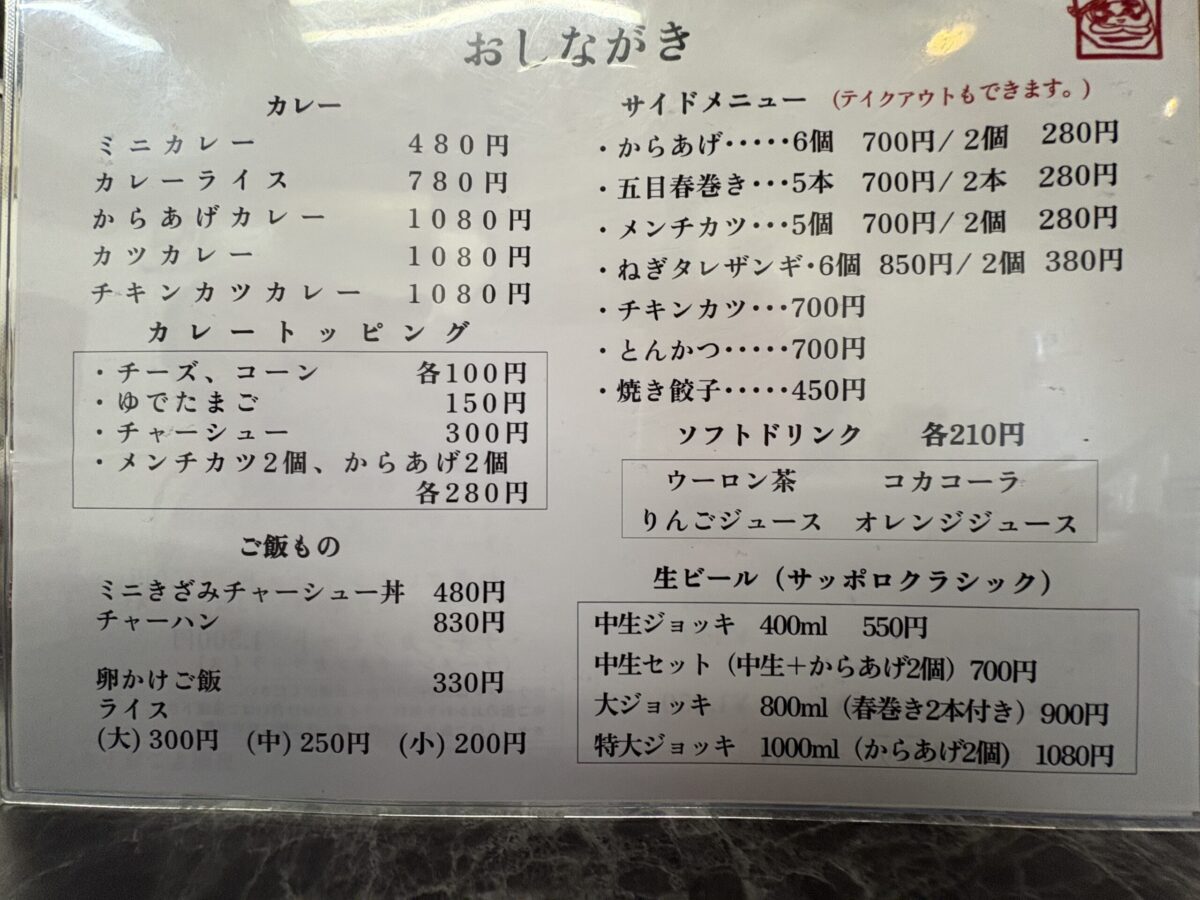 おしながき
カレー
ミニカレー 480円
カレーライス 780円
からあげカレー 1080円
カツカレー 1080円
チキンカツカレー 1080円
カレートッピング
・チーズ、コーン 各100円
・ゆでたまご 150円
・チャーシュー 300円
・メンチカツ2個、からあげ2個
各280円
ご飯もの
ミニきざみチャーシュー丼 480円
チャーハン 830円
卵かけご飯 330円
ライス
(大) 300円 (中) 250円 (小) 200円
サイドメニュー (テイクアウトもできます。)
・からあげ・・・・・6個 700円/ 2個 280円
・五目春巻き・・・5本 700円/ 2本 280円
・メンチカツ・・・5個 700円/ 2個 280円
・ねぎタレザンギ・6個 850円/ 2個 380円
・チキンカツ・・・700円
・とんかつ・・・・・700円
・焼き餃子・・・・・450円
ソフトドリンク 各210円
ウーロン茶 コカコーラ
りんごジュース オレンジジュース
生ビール(サッポロクラシック)
中生ジョッキ 400ml 550円
中生セット(中生+からあげ2個)700円
大ジョッキ 800ml(春巻き2本付き)900円
特大ジョッキ 1000ml(からあげ2個) 1080円